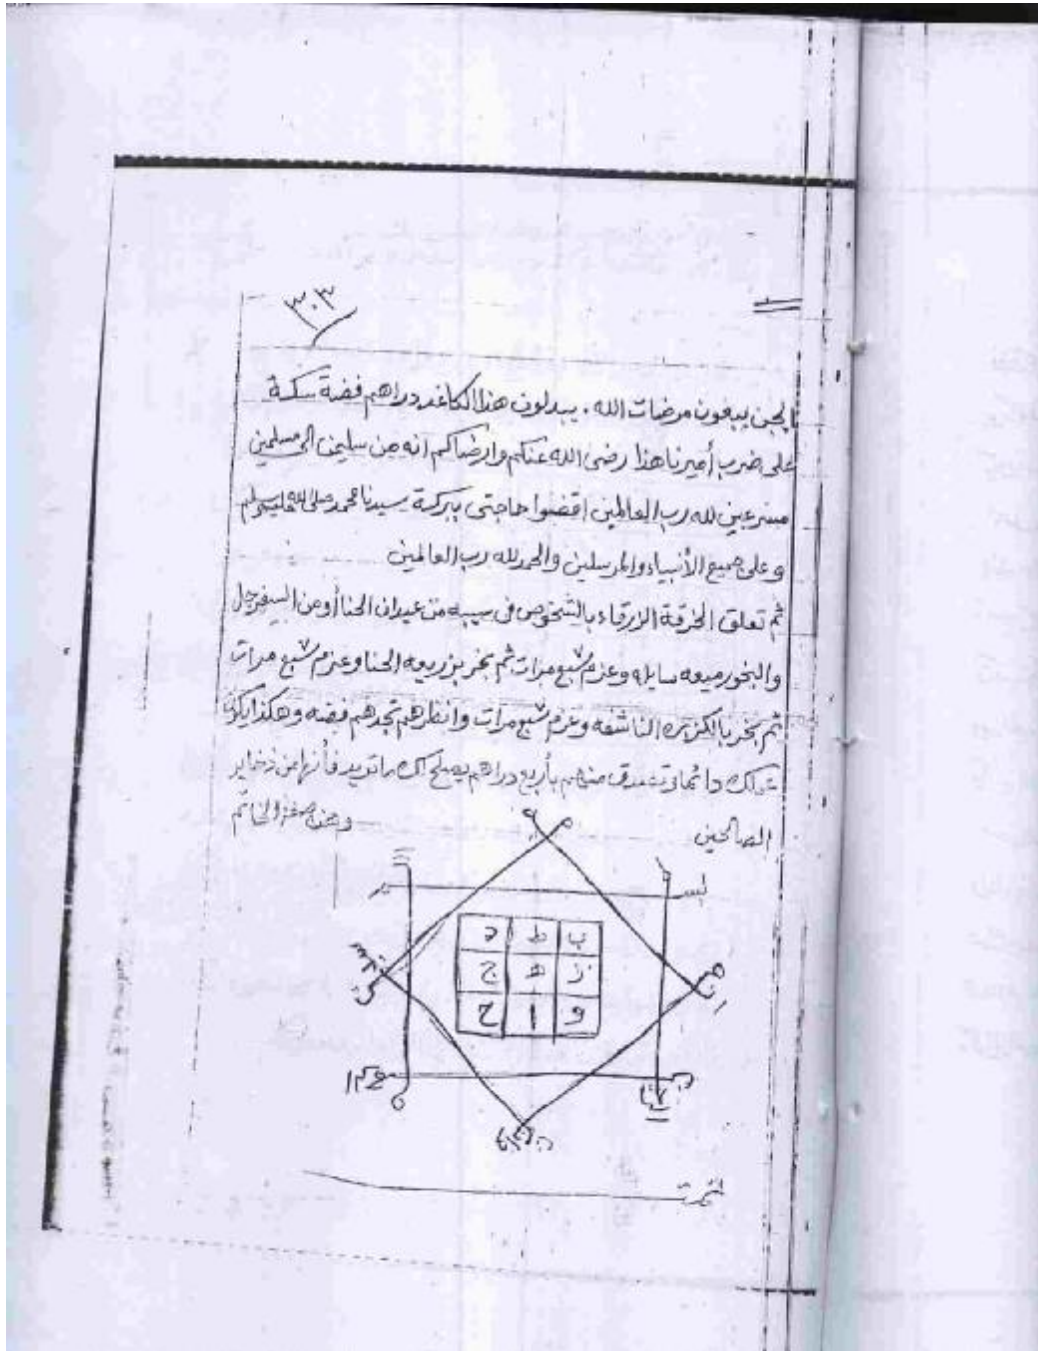 ٣٠٣
الجن يبغون مرضات الله . يبدلون هذا الكاغد دراهم فضة سكة
على ضرب أميرنا هذا رضى الله عنكم وارضاكم انه من سليمن الى مسلمين
مسرعين لله رب العالمين اقضوا حاجتى ببركة سيدنا محمد صلى الله عليه وسلم
وعلى جميع الأنبياء والمرسلين والحمد لله رب العالمين
ثم تعلق الخرقة الزرقاء بالشخوص فى سيبه من عيدان الحنا أو من السفرجل
والبخور ميعه سايله وعزم سبع مرات ثم بخر بزريعه الحنا وعزم سبع مرات
ثم بخر بالكزبره الناشفه وعزم سبع مرات وانظرهم تجدهم فضه وهكذا يكون
دائما وتصدق منهم بأربع دراهم يصلح لك ما تريد فأنها من ذخاير
الصالحين وهذه صفة الخاتم
ب ط د
ز ه ج
و ا ح
تمت